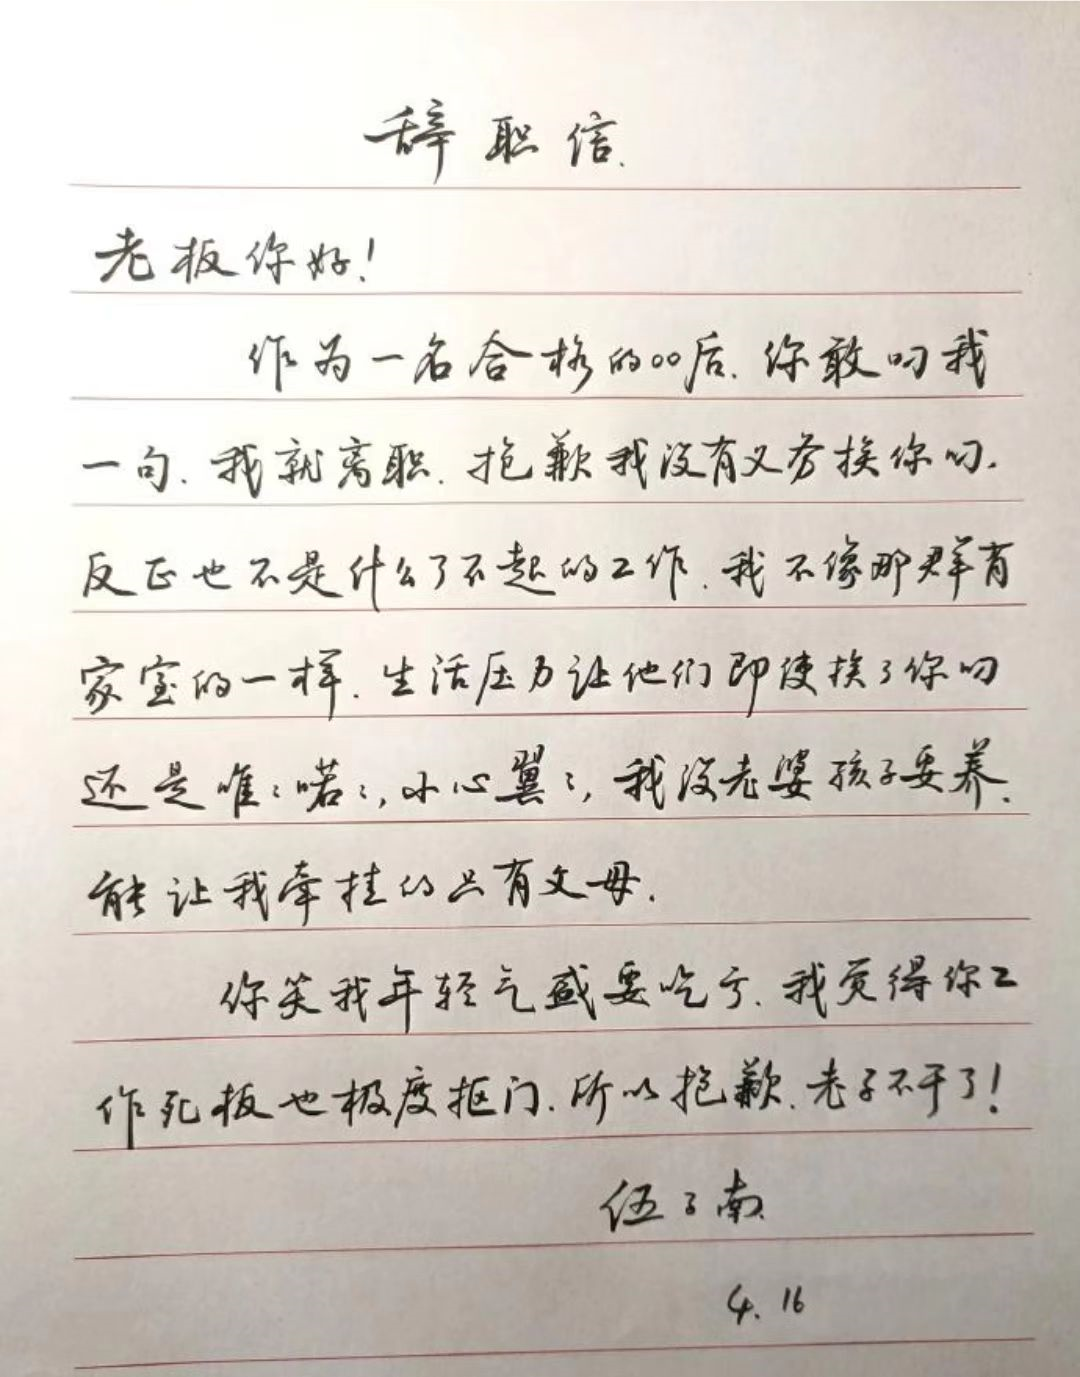 辞职信.
老板你好!
作为一名合格的00后.你敢叼我
一句.我就离职.抱歉我没有义务挨你叼.
反正也不是什么了不起的工作.我不像那群有
家室的一样.生活压力让他们即使挨了你叼
还是唯:喏:,小心翼:,我没老婆孩子要养.
能让我牵挂的只有父母.
你笑我年轻气盛要吃亏.我觉得你工
作死板也极度抠门.所以抱歉.老子不干了!
伍子南.
4.16